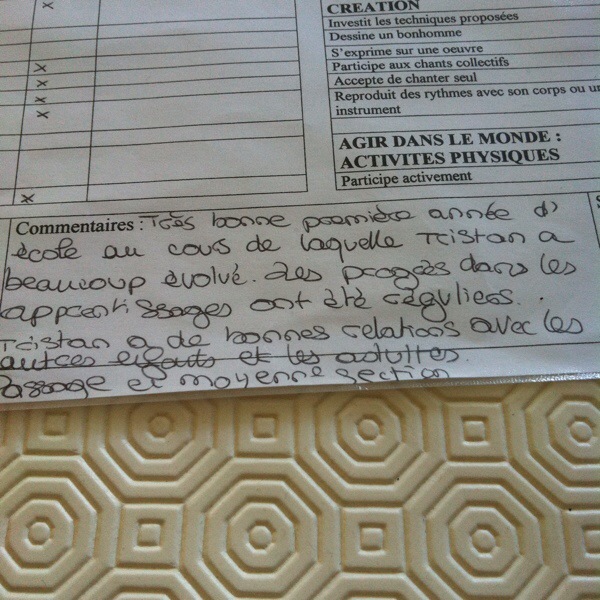 CREATION
Investit les techniques proposées
Dessine un bonhomme
S'exprime sur une oeuvre
Participe aux chants collectifs
Accepte de chanter seul
Reproduit des rythmes avec son corps ou un
instrument
AGIR DANS LE MONDE :
ACTIVITES PHYSIQUES
Participe activement
Commentaires : Très bonne première année d'
école au cours de laquelle Tristan a
beaucoup évolué. Les progrès dans les
apprentissages ont été réguliers.
Tristan a de bonnes relations avec les
autres enfants et les adultes.
Passage en moyenne section